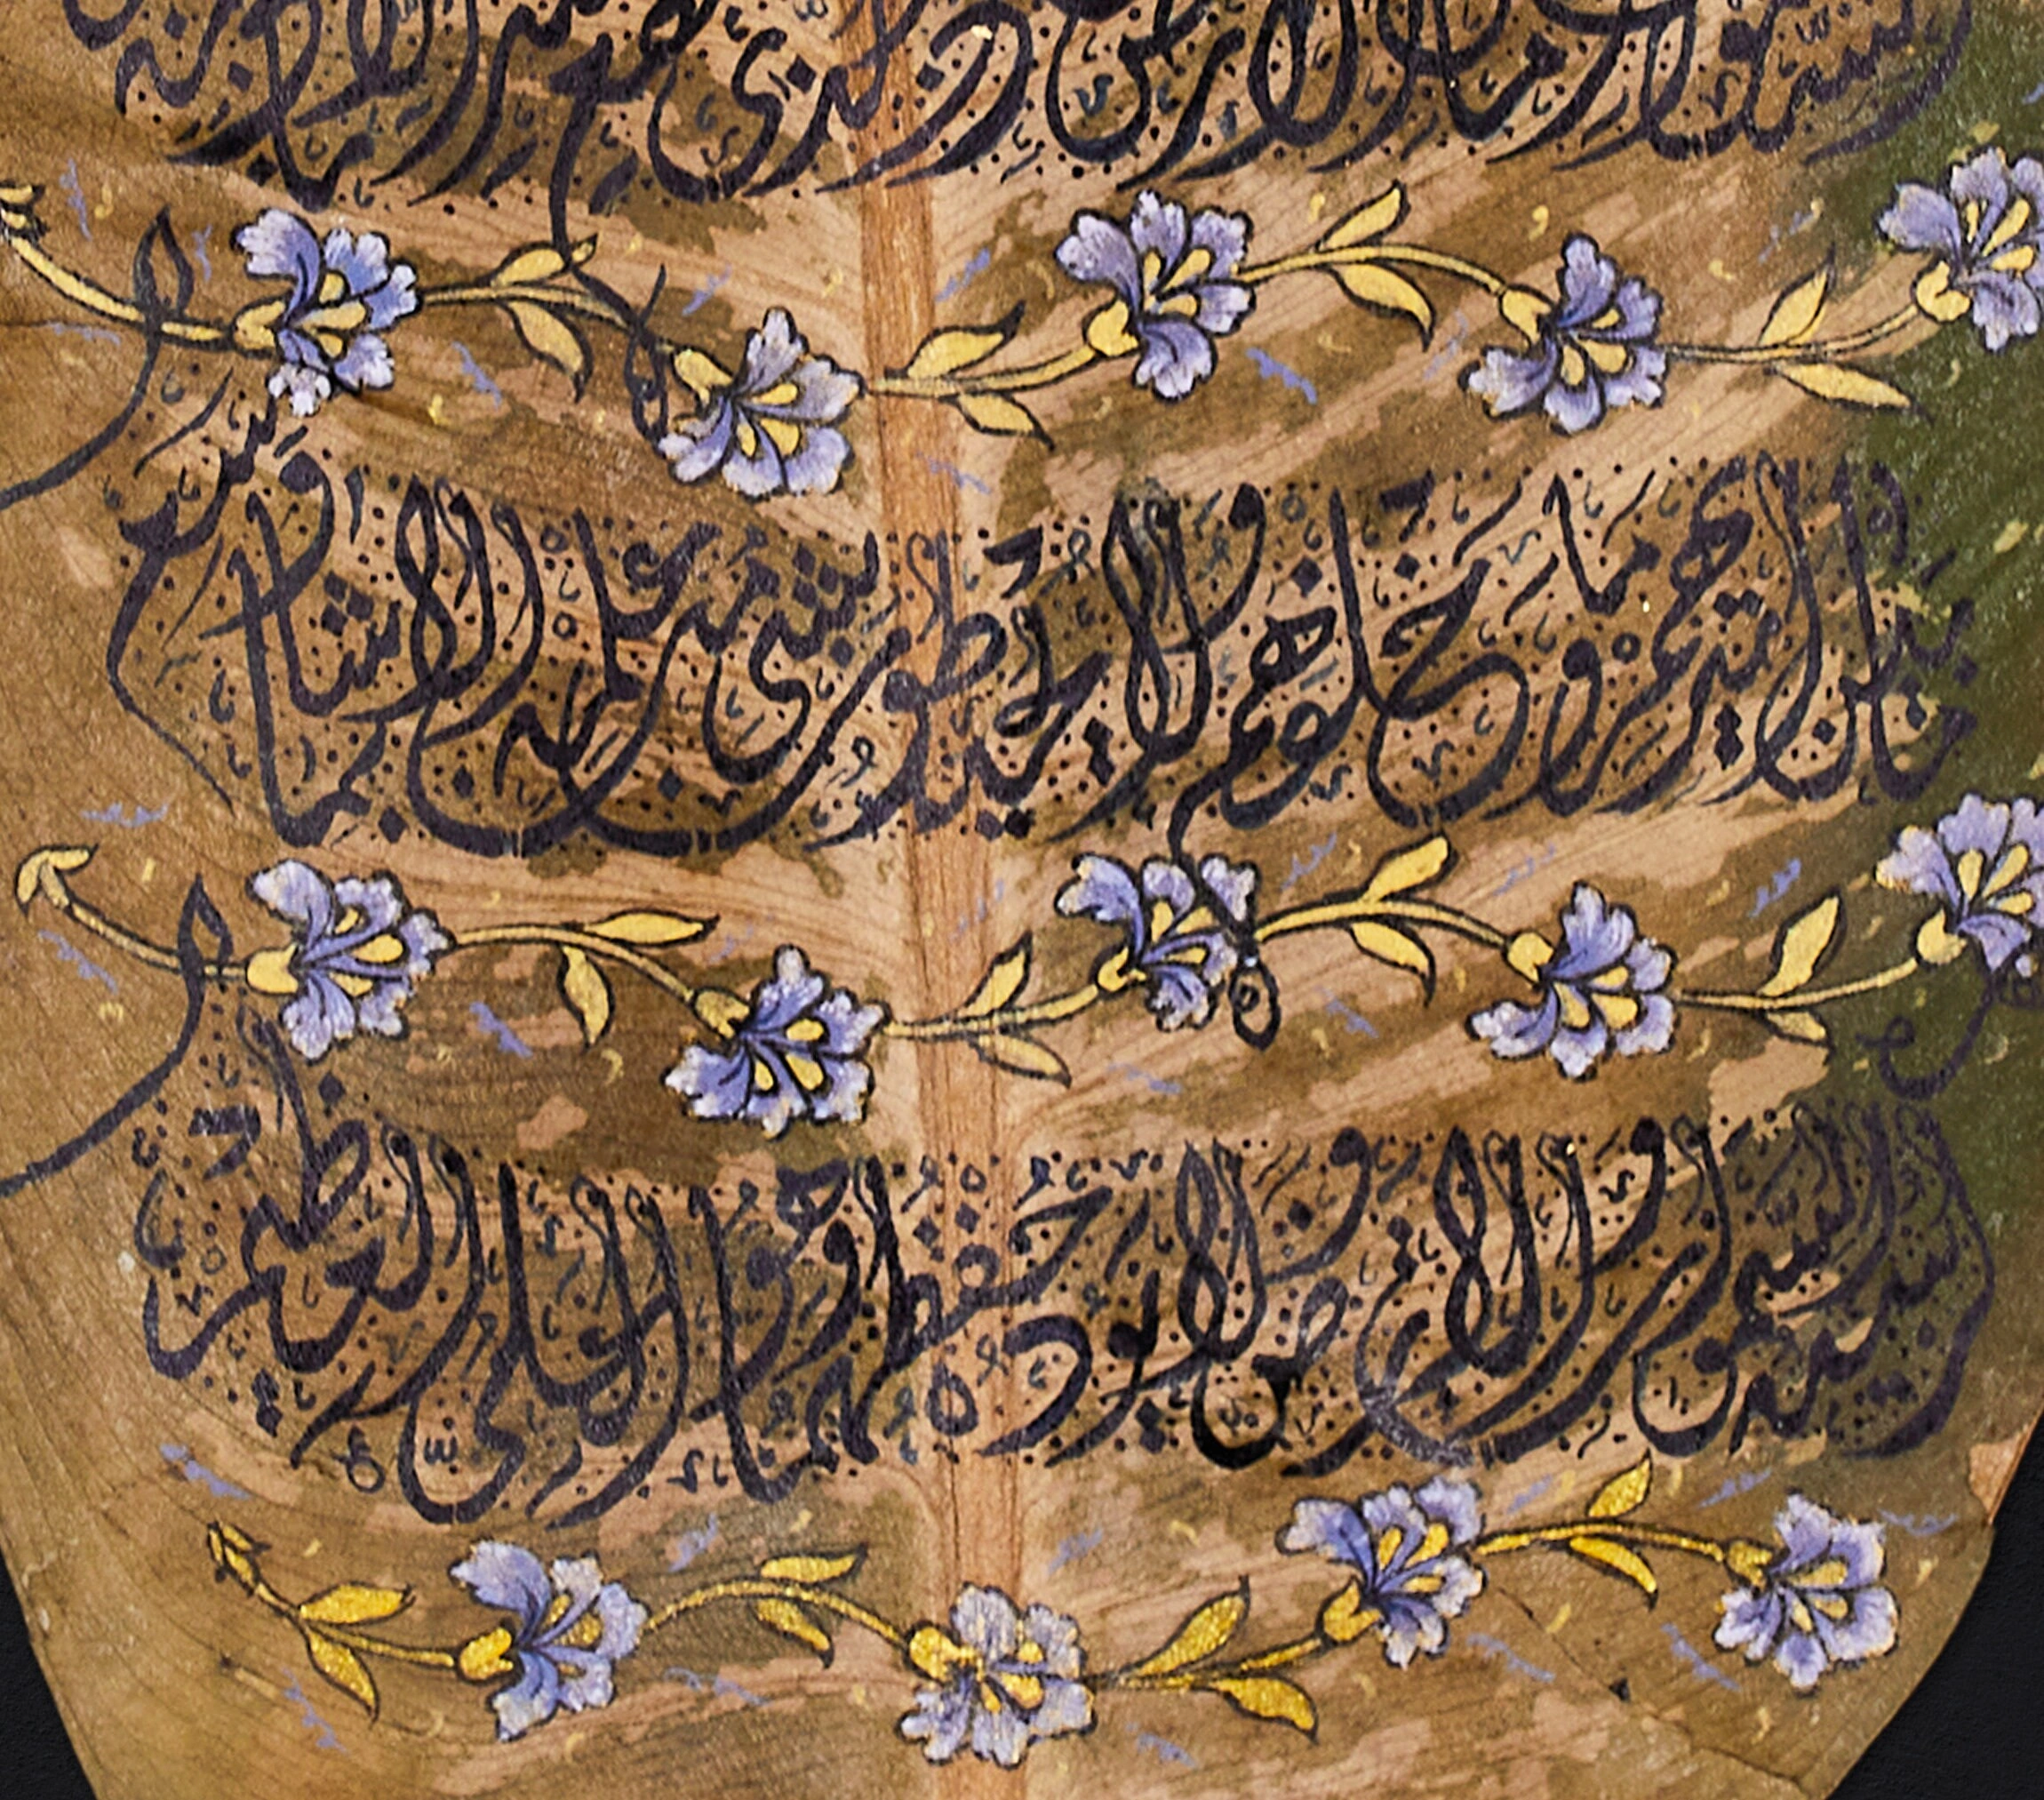 السموات وما في الارض من ذا الذي يشفع عنده الا باذنه
ما بين ايديهم وما خلفهم ولا يحيطون بشيء من علمه الا بما شاء وسع
كرسيه السموات والارض ولا يؤده حفظهما وهو العلي العظيم